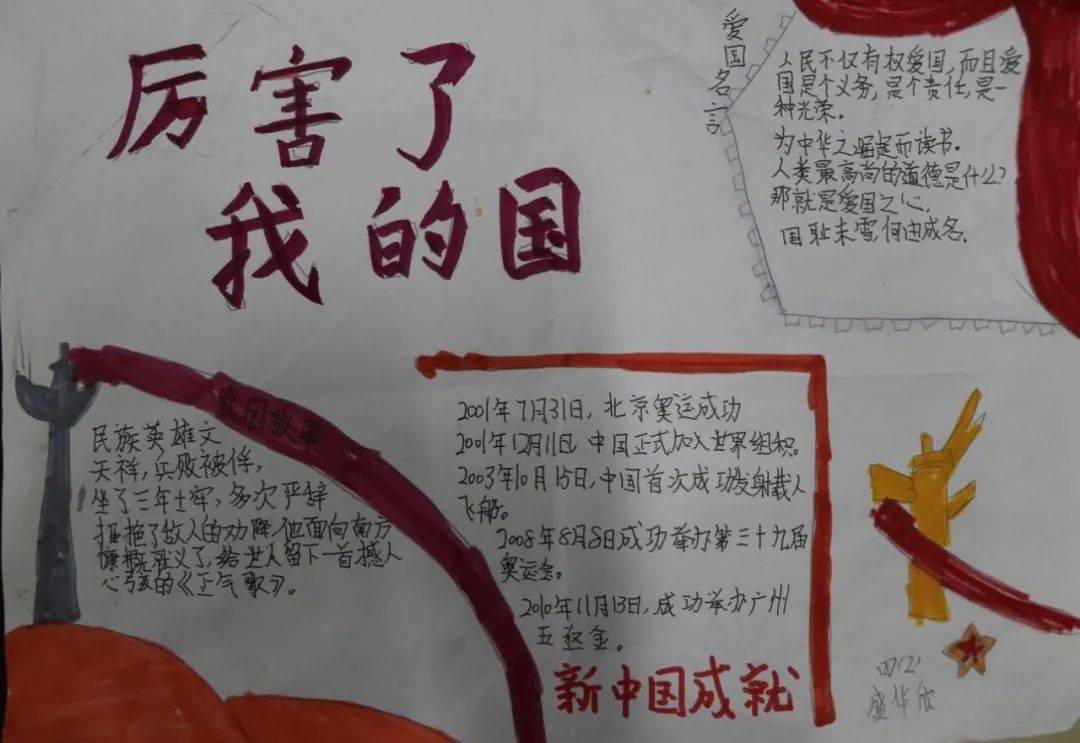 厉害了
我的国
爱国名言
人民不仅有权爱国,而且爱
国是个义务,是个责任,是一
种光荣。
为中华之崛起而读书.
人类最高尚的道德是什么?
那就是爱国之心.
国耻未雪,何由成名.
爱国故事
民族英雄文
天祥,兵败被俘,
坐了三年土牢,多次严辞
拒绝了敌人的劝降.他面向南方
慷慨就义了,给世人留下一首撼人
心弦的《正气歌》。
2001年7月31日,北京奥运成功
2001年12月11日,中国正式加入世界组织。
2003年10月15日,中国首次成功发射载人
飞船。
2008年8月8日成功举办第三十九届
奥运会。
2010年11月13日,成功举办广州
新中国成就
四(2)
盛华